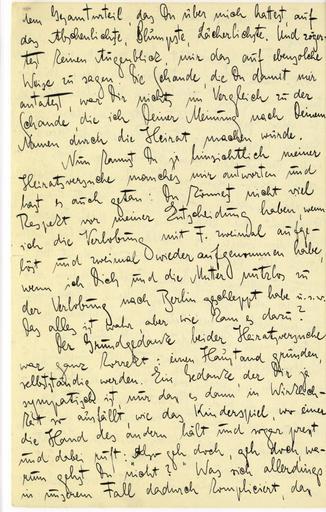 dem Gesamturteil, das Du über mich hattest, auf
das Abscheulichste, Plumpste, Lächerlichste. Und zöger-
test keinen Augenblick, mir das auf ebensolche
Weise zu sagen. Die Schande, die Du damit mir
antatest, war Dir nichts im Vergleich zu der
Schande die ich Deiner Meinung nach Deinem
Namen durch die Heirat machen würde.
Nun kannst Du ja hinsichtlich meiner
Heiratsversuche manches mir antworten und
hast es auch getan: Du könntest nicht viel
Respekt vor meiner Entscheidung haben, wenn
ich die Verlobung mit F. zweimal aufge-
löst und zweimal wieder aufgenommen habe,
wenn ich Dich und die Mutter nutzlos zu
der Verlobung nach Berlin geschleppt habe u.s.w.
Das alles ist wahr, aber wie kam es dazu?
Der Grundgedanke beider Heiratsversuche
war ganz korrekt: einen Hausstand gründen,
selbstständig werden. Ein Gedanke der Dir ja
sympathisch ist nur das es dann in Wirklich-
keit so ausfällt, wie das Kinderspiel, wo einer
die Hand des andern hält und sogar presst
und dabei ruft: "Ach geh doch, geh doch, wa-
rum gehst Du nicht?" Was sich allerdings
in unserem Fall dadurch kompliciert, das